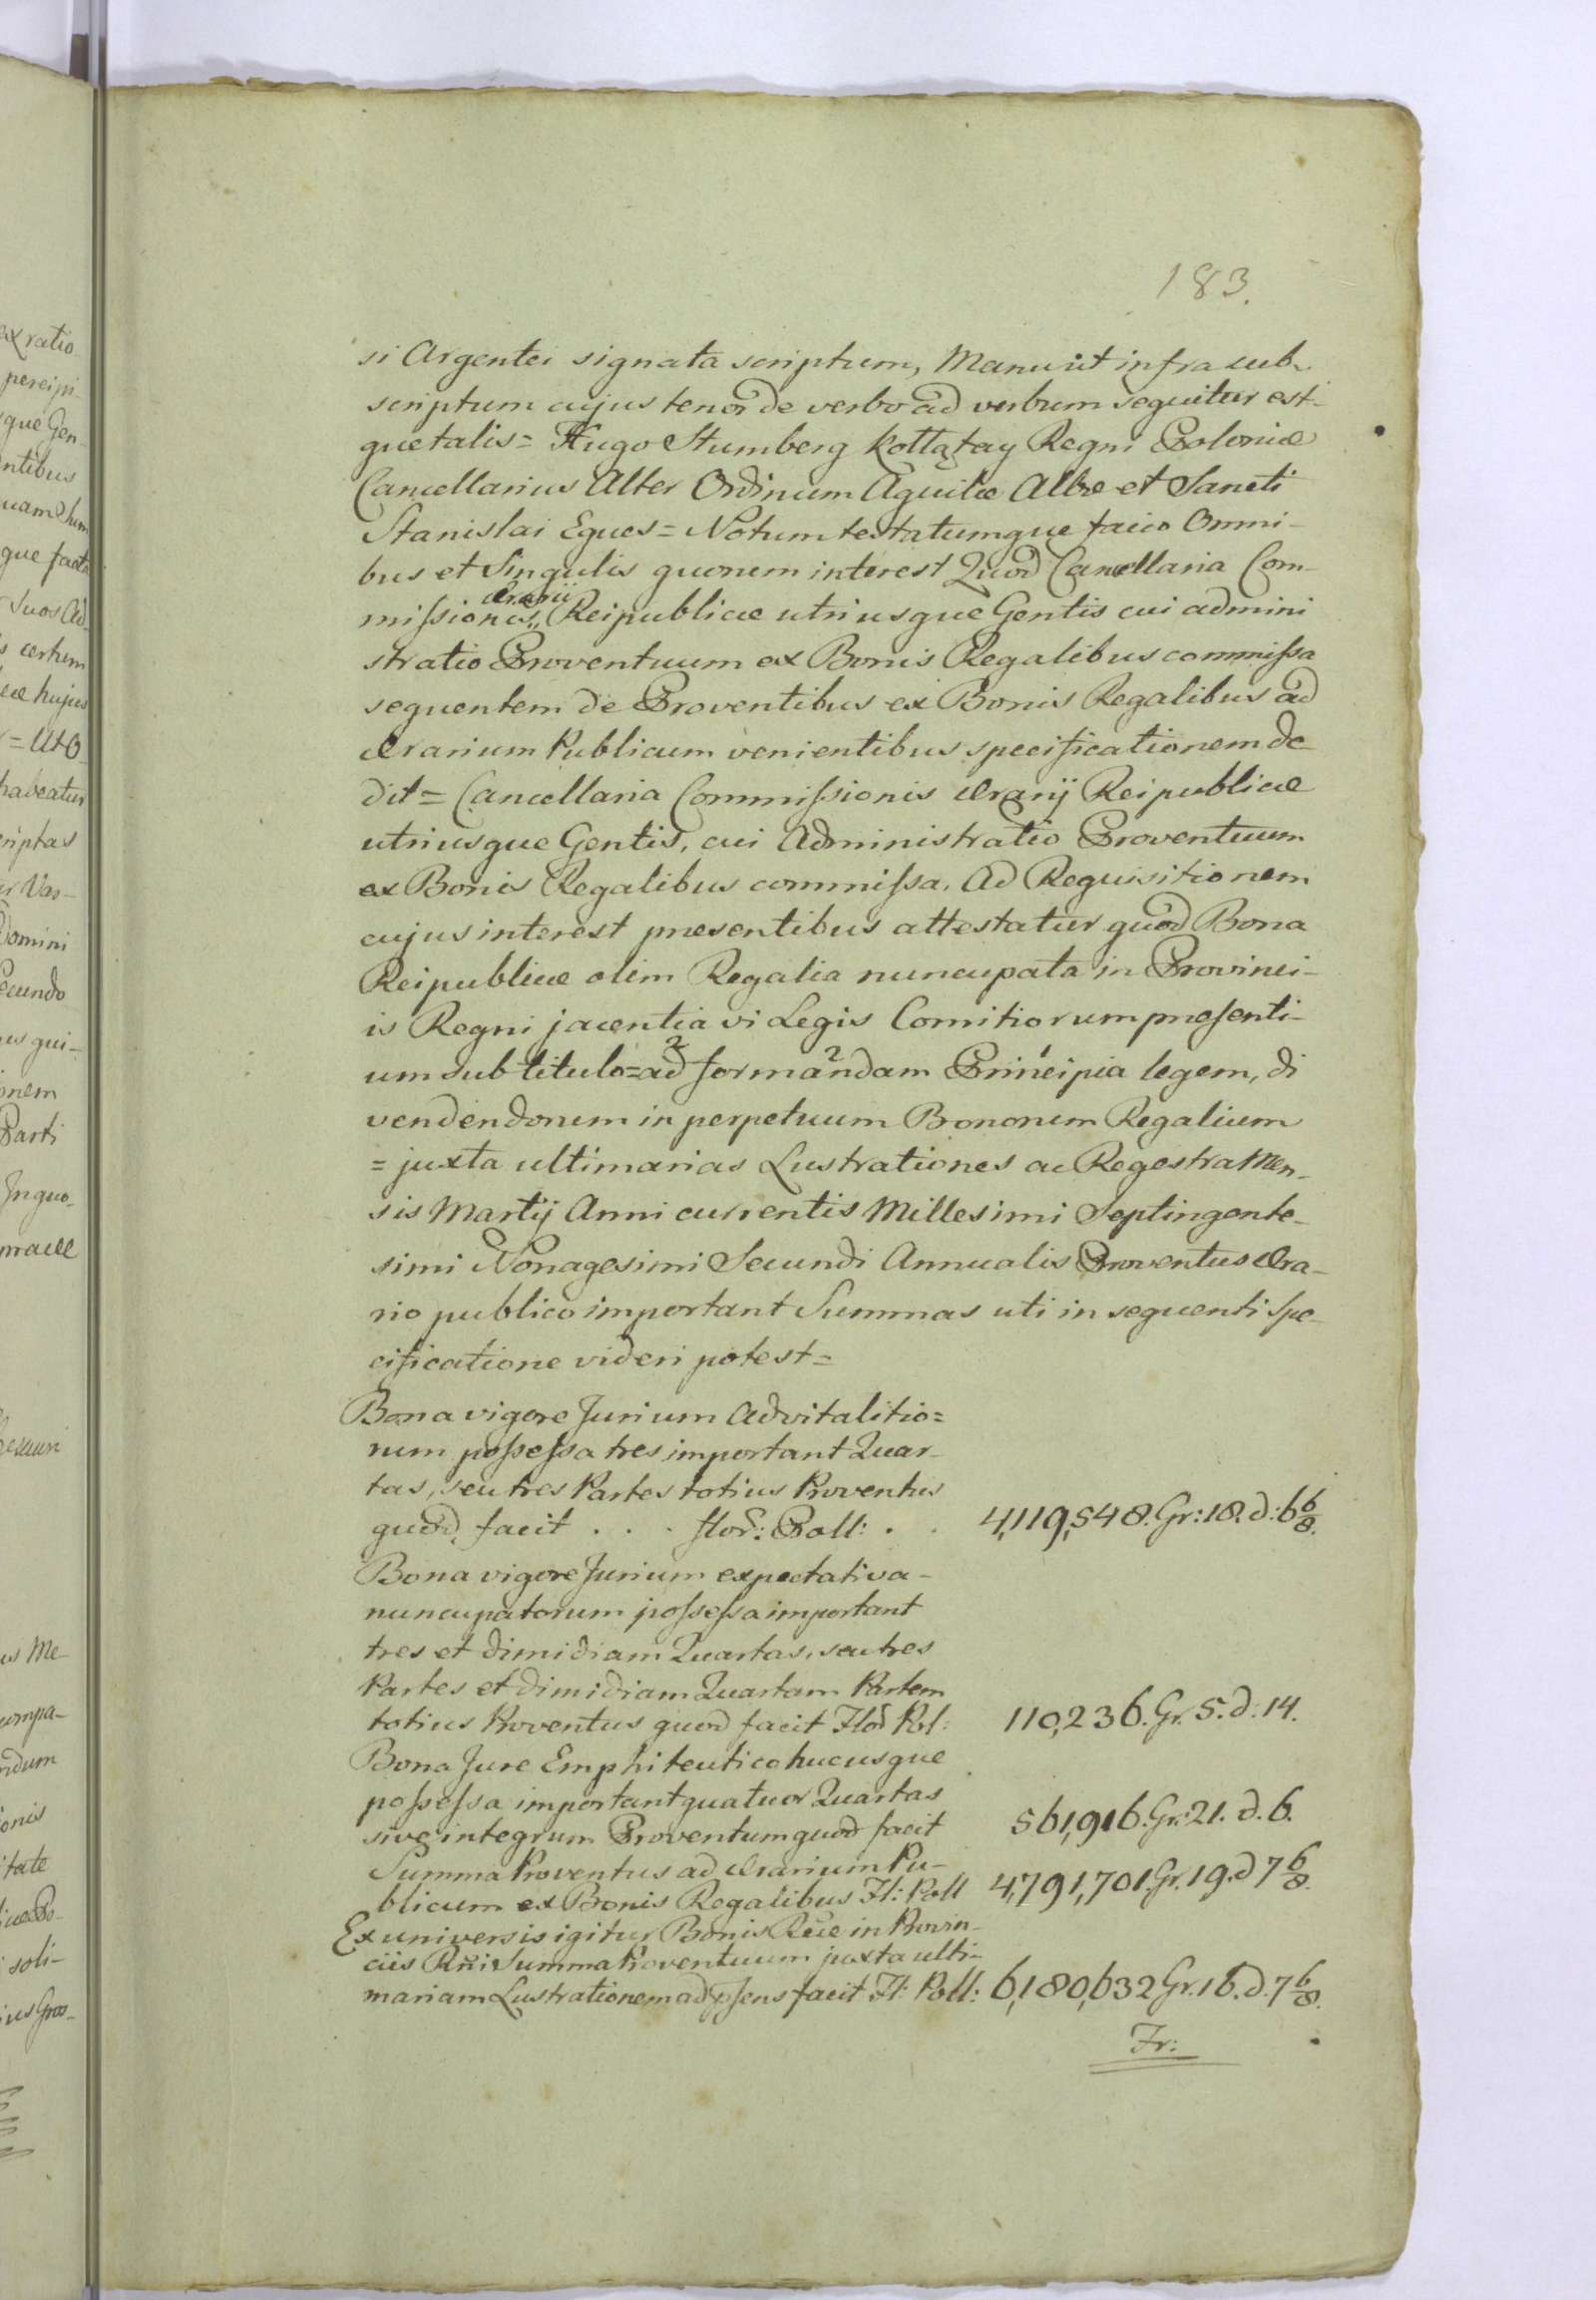 183.
si Argentei signata scriptum, Manu ut infra sub-
scriptum cujus tenor de verbo ad verbum sequitur est-
que talis = Hugo Stumberg Kołłątay Regni Poloniæ
Cancellarius Alter Ordinum Aquilæ Albæ et Sancti
Stanislai Eques = Notum testatumque facio Omni-
bus et Singulis quorum interest Quod Cancellaria Com-
Ærarii
missionis,, Reipublicæ utriusque Gentis cui admini
stratio Proventuum ex Bonis Regalibus commissa
sequentem de Proventibus ex Bonis Regalibus ad
Ærarium Publicum venientibus specificationem de-
dit = Cancellaria Commissionis Ærarij Reipublicæ
utriusque Gentis, cui Administratio Proventuum
ex Bonis Regalibus commissa. Ad Requisitionem
cujus interest præsentibus attestatur quod Bona
Reipublicæ olim Regalia nuncupata in Provinci-
is Regni jacentia vi Legis Comitiorum præsenti-
um sub titulo = ad 2 formandam 2 Principia 1 legem, di
vendendorum in perpetuum Bonorum Regalium
= juxta ultimarias Lustrationes ac Regestra Men-
sis Martij Anni currentis Millesimi Septingente-
simi Nonagesimi Secundi Annualis Proventus Æra-
rio publico important Summas uti in sequenti Spe-
cificatione videri potest =
Bona vigore Jurium Advitalitio=
rum possessa tres important Quar-
tas, seu tres Partes totius Proventus
quod facit . . . flor: Poll: . . 4,119,548. Gr: 18. d: 6 6/8.
Bona vigore Jurium expectativa-
nuncupatorum possessa important
tres et dimidiam Quartas, seu tres
Partes et dimidiam Quartam Partem
totius Proventus quod facit Flor Pol: 110,236. Gr. 5. d. 14.
Bona Jure Emphiteutico hucusque
possessa important quatuor Quartas
sive integrum Proventum quod facit 561,916. Gr: 21. d. 6.
Summa Proventus ad Ærarium Pu-
blicum ex Bonis Regalibus Fl: Poll 4,791,701. Gr. 19. d 7 6/8.
Ex universis igitur Bonis Rcæ in Provin-
ciis Rni Summa Proventuum juxta ulti-
mariam Lustrationem ad psens facit Fl: Poll: 6,180,632 Gr. 16. d. 7 6/8.
Fr: